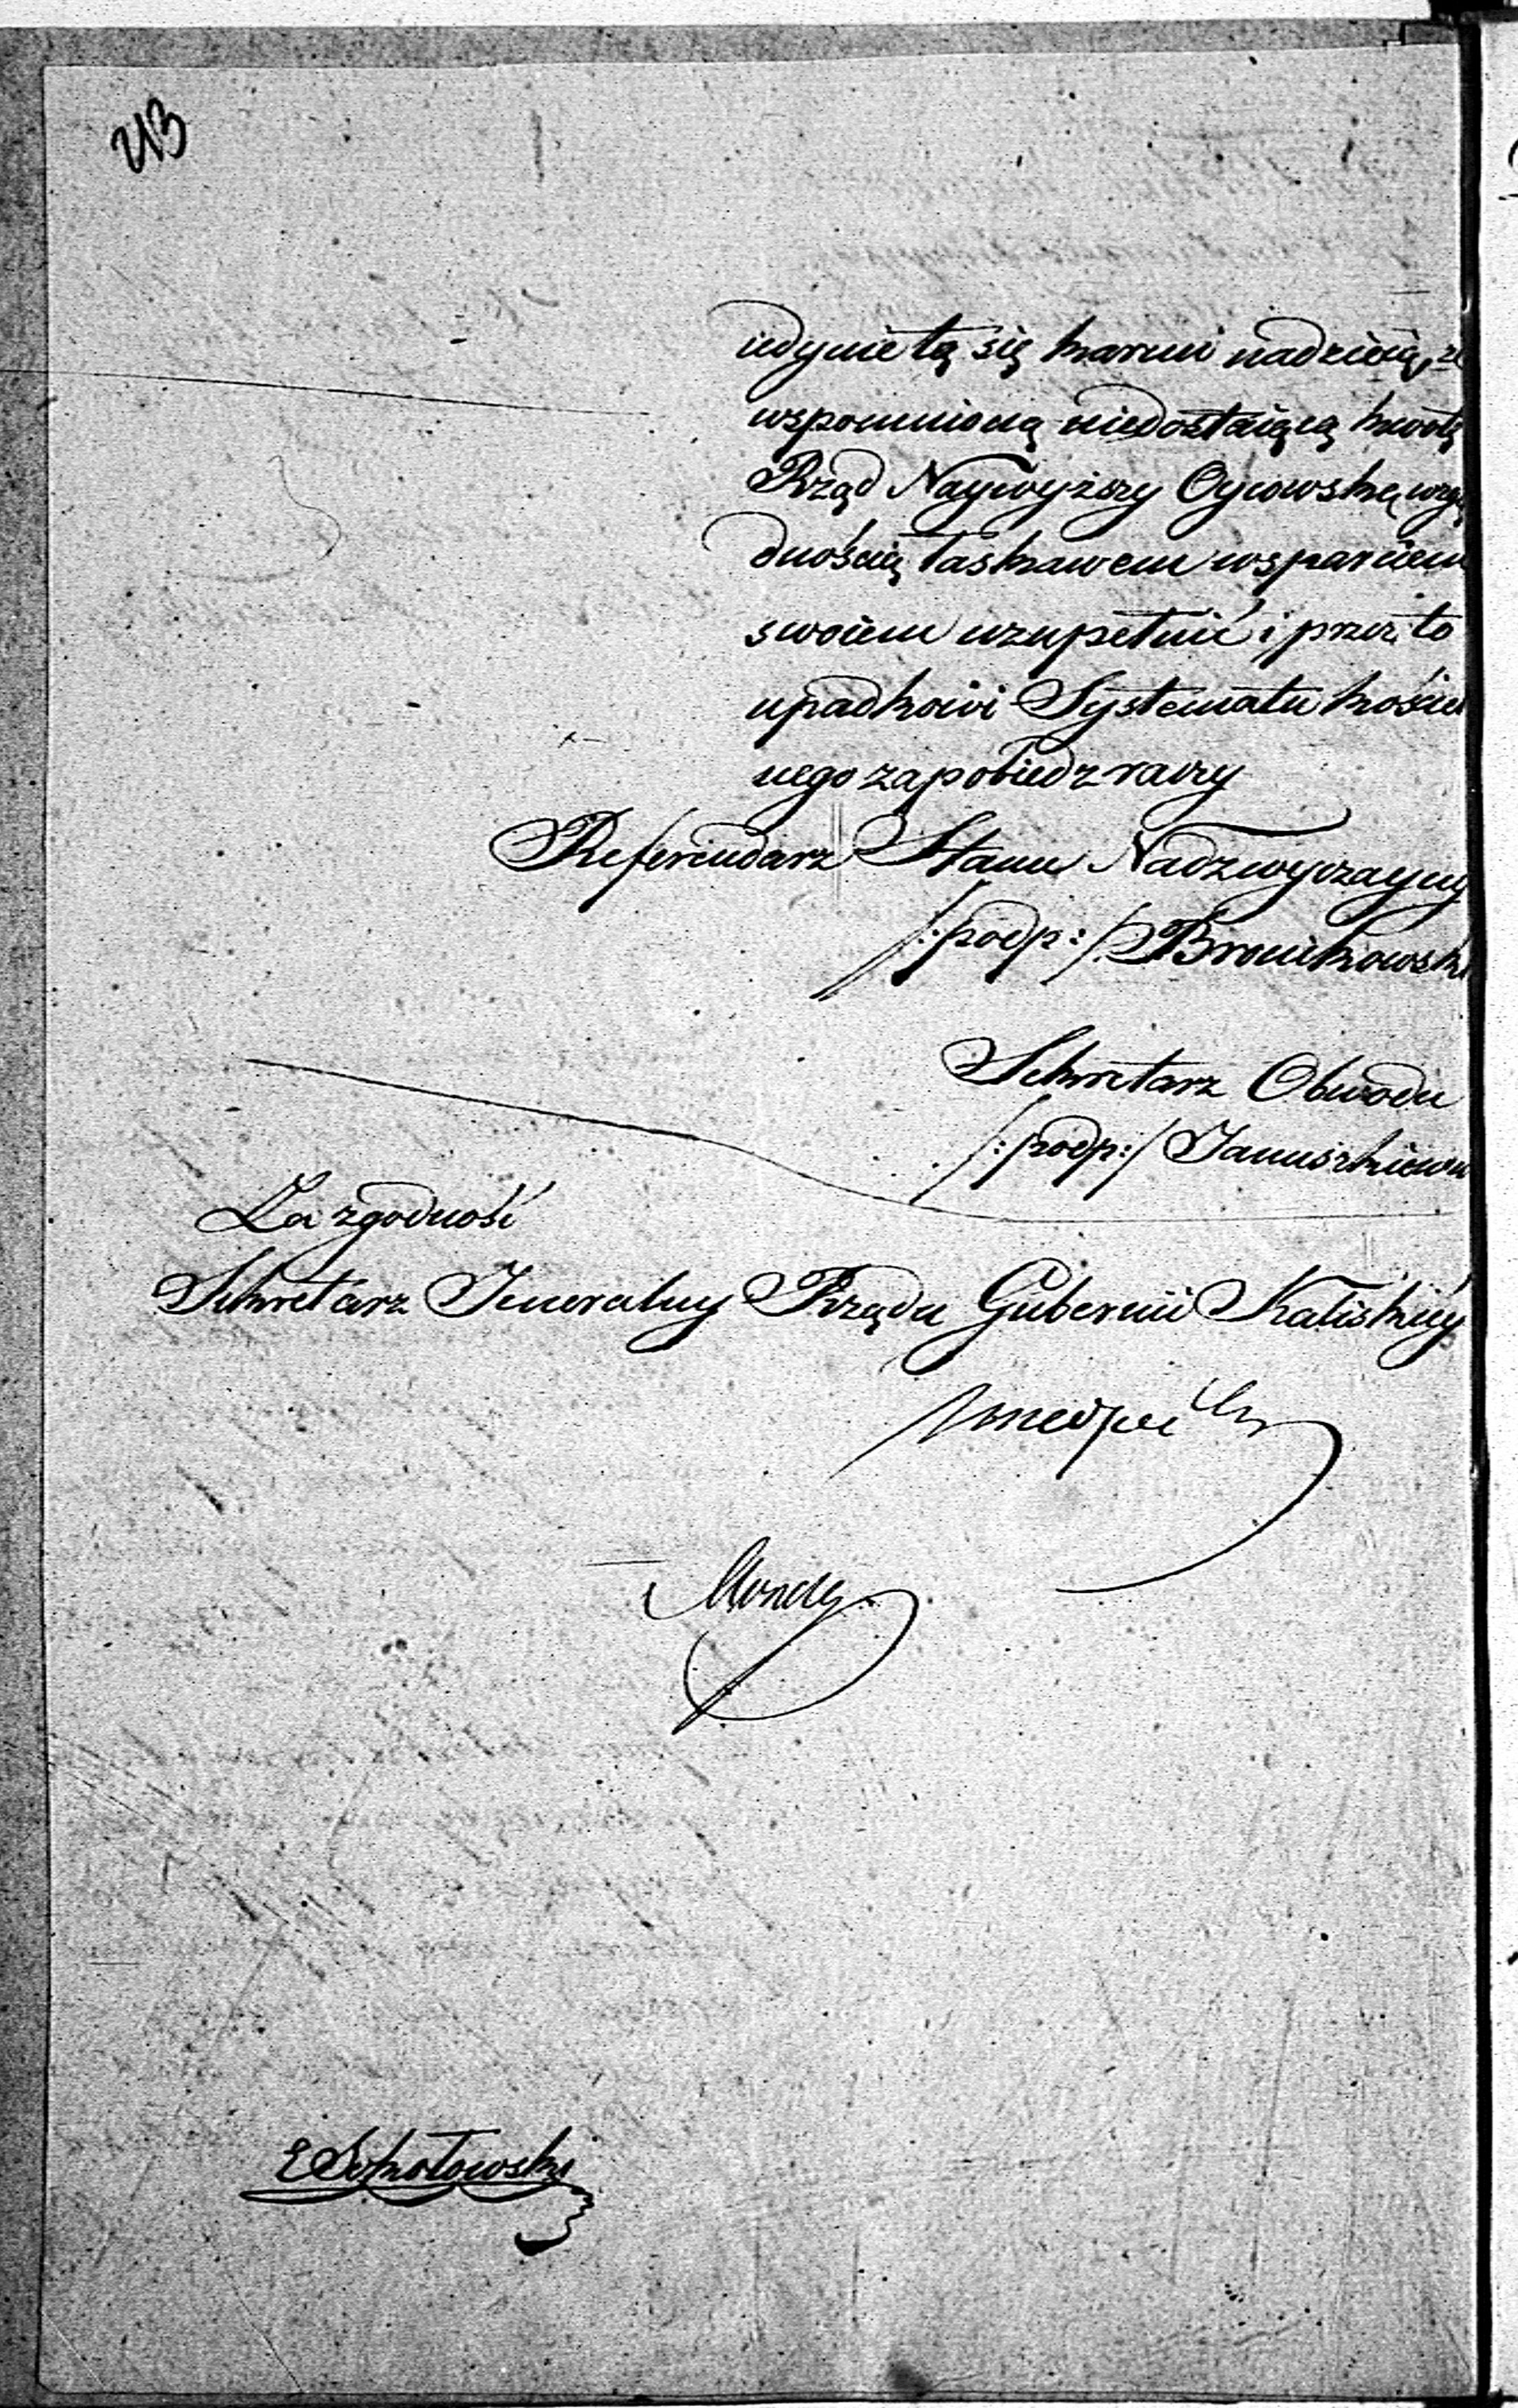 213
iedynie tą się karmi nadzieią, że
wspomnioną niedostaiącą kwotę
Rząd Naywyższy Oycowską wzglę
dnością łaskawem wsparciem
swoiem uzupełnić i przez to
upadkowi Systematu koście
nego zapobiedz raczy
Referendarz Stanu Nadzwyczayny
/:podp:/ Bronikowski
Sekretarz Obwodu
/:podp:/ Januszkiewicz
Za zgodność
Sekretarz Jeneralny Rządu Gubernii Kaliskiéy
ESokołowski